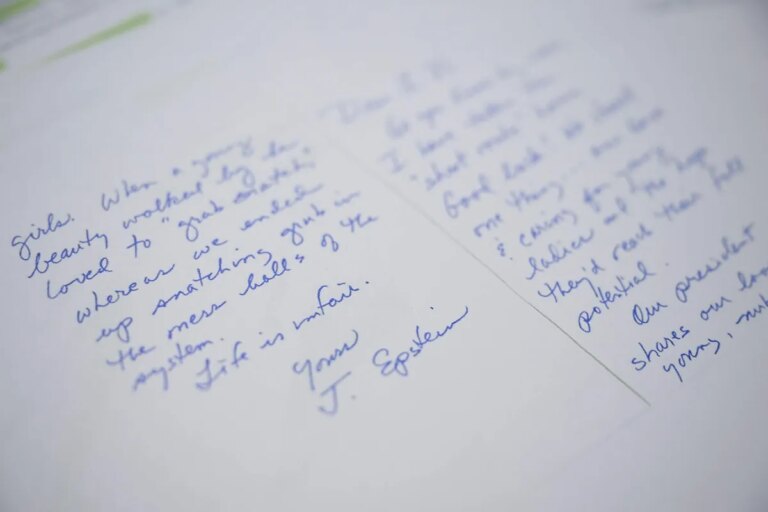 girls. When a young
beauty walked by he
loved to "grab snatch,"
whereas we ended
up snatching grub in
the mess halls of the
system.
Life is unfair.
Yours
J. Epstein
Dear L. N.
As you know by now
I have taken the
"short route" home.
Good luck! We shared
one thing... our love
& caring for young
ladies and the hope
they'd reach their full
potential.
Our president
shares our love
young,